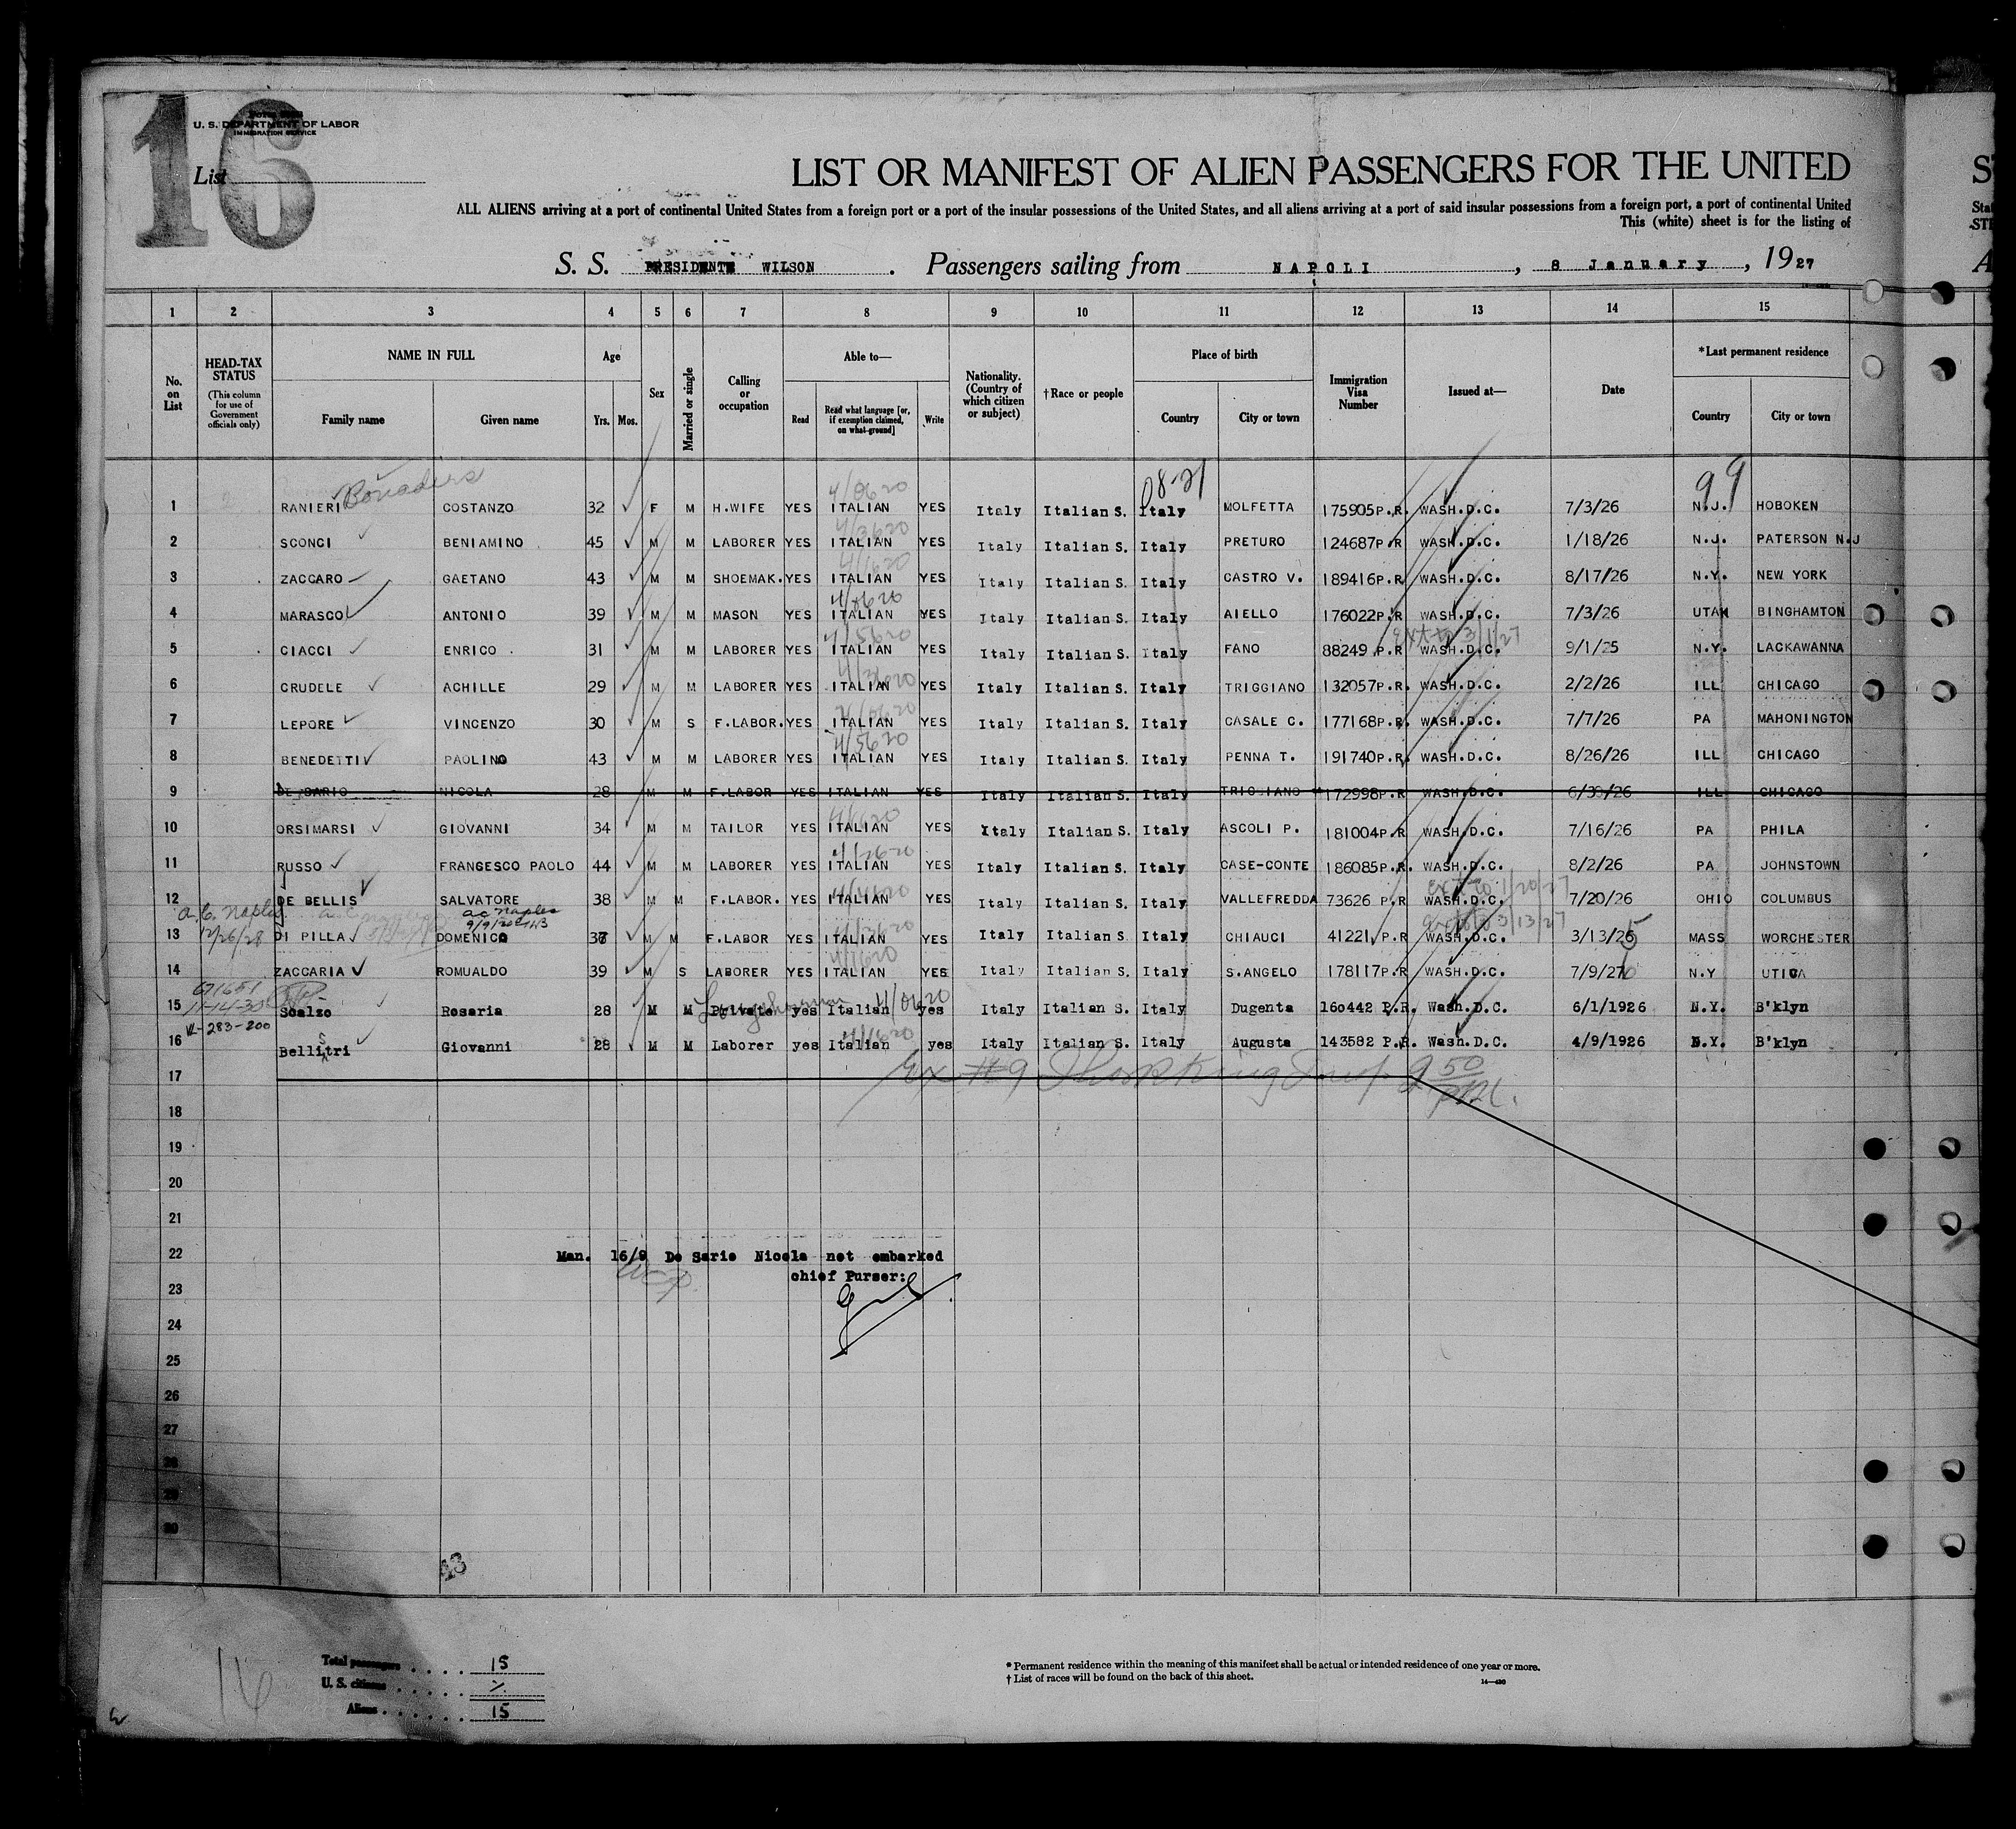 16
U. S. DEPARTMENT OF LABOR
IMMIGRATION SERVICE
List
LIST OR MANIFEST OF ALIEN PASSENGERS FOR THE UNITED
ALL ALIENS arriving at a port of continental United States from a foreign port or a port of the insular possessions of the United States, and all aliens arriving at a port of said insular possessions from a foreign port, a port of continental United
This (white) sheet is for the listing of
S. S. PRESIDENTE WILSON . Passengers sailing from NAPOLI , 8 January , 1927
1 2 3 4 5 6 7 8 9 10 11 12 13 14 15
No. on List HEAD-TAX STATUS (This column for use of Government officials only) NAME IN FULL Family name Given name Age Yrs. Mos. Sex Married or single Calling or occupation Able to— Read Read what language [or, if exemption claimed, on what ground] Write Nationality. (Country of which citizen or subject) †Race or people Place of birth Country City or town Immigration Visa Number Issued at— Date *Last permanent residence Country City or town
08-21 99
1 RANIERI COSTANZO 32 F M H.WIFE YES ITALIAN YES Italy Italian S. Italy MOLFETTA 175905 P.R. WASH.D.C. 7/3/26 N.J. HOBOKEN
2 SCONCI BENIAMINO 45 M M LABORER YES ITALIAN YES Italy Italian S. Italy PRETURO 124687 P.R WASH.D.C. 1/18/26 N.J. PATERSON N.J
3 ZACCARO GAETANO 43 M M SHOEMAK. YES ITALIAN YES Italy Italian S. Italy CASTRO V. 189416 P.R WASH.D.C. 8/17/26 N.Y. NEW YORK
4 MARASCO ANTONIO 39 M M MASON YES ITALIAN YES Italy Italian S. Italy AIELLO 176022 P.R WASH.D.C. 7/3/26 UTAH BINGHAMTON
5 CIACCI ENRICO . 31 M M LABORER YES ITALIAN YES Italy Italian S. Italy FANO 88249 P.R WASH.D.C. 9/1/25 N.Y. LACKAWANNA
6 CRUDELE ACHILLE 29 M M LABORER YES ITALIAN YES Italy Italian S. Italy TRIGGIANO 132057 P.R. WASH.D.C. 2/2/26 ILL CHICAGO
7 LEPORE VINCENZO 30 M S F.LABOR. YES ITALIAN YES Italy Italian S. Italy CASALE C. 177168 P.R. WASH.D.C. 7/7/26 PA MAHONINGTON
8 BENEDETTI PAOLINO 43 M M LABORER YES ITALIAN YES Italy Italian S. Italy PENNA T. 191740 P.R. WASH.D.C. 8/26/26 ILL CHICAGO
9 DE SARIO NICOLA 28 M M F.LABOR YES ITALIAN YES Italy Italian S. Italy TRIGGIANO 172998 P.R WASH.D.C. 6/30/26 ILL CHICAGO
10 ORSIMARSI GIOVANNI 34 M M TAILOR YES ITALIAN YES Italy Italian S. Italy ASCOLI P. 181004 P.R WASH.D.C. 7/16/26 PA PHILA
11 RUSSO FRANCESCO PAOLO 44 M M LABORER YES ITALIAN YES Italy Italian S. Italy CASE-CONTE 186085 P.R. WASH.D.C. 8/2/26 PA JOHNSTOWN
12 DE BELLIS SALVATORE 38 M M F.LABOR. YES ITALIAN YES Italy Italian S. Italy VALLEFREDDA 73626 P.R WASH.D.C. 7/20/26 OHIO COLUMBUS
a.c. Naples 12/26/28
13 DI PILLA DOMENICO 37 M M F.LABOR YES ITALIAN YES Italy Italian S. Italy CHIAUCI 41221 P.R WASH.D.C. 3/13/25 MASS WORCHESTER
14 ZACCARIA ROMUALDO 39 M S LABORER YES ITALIAN YES Italy Italian S. Italy S.ANGELO 178117 P.R WASH.D.C. 7/9/26 N.Y UTICA
15 Scalzo Rosaria 28 M M Private yes Italian yes Italy Italian S. Italy Dugenta 160442 P.R. Wash.D.C. 6/1/1926 N.Y. B'klyn
VL-283-200
16 Bellitri Giovanni 28 M M Laborer yes Italian yes Italy Italian S. Italy Augusta 143582 P.R. Wash.D.C. 4/9/1926 N.Y. B'klyn
17
18
19
20
21
22 Man. 16/9 De Sario Nicola not embarked
chief Purser:
23
24
25
26
27
28
29
30
43
16
Total passengers 15
U. S. citizens
Aliens 15
* Permanent residence within the meaning of this manifest shall be actual or intended residence of one year or more.
† List of races will be found on the back of this sheet.